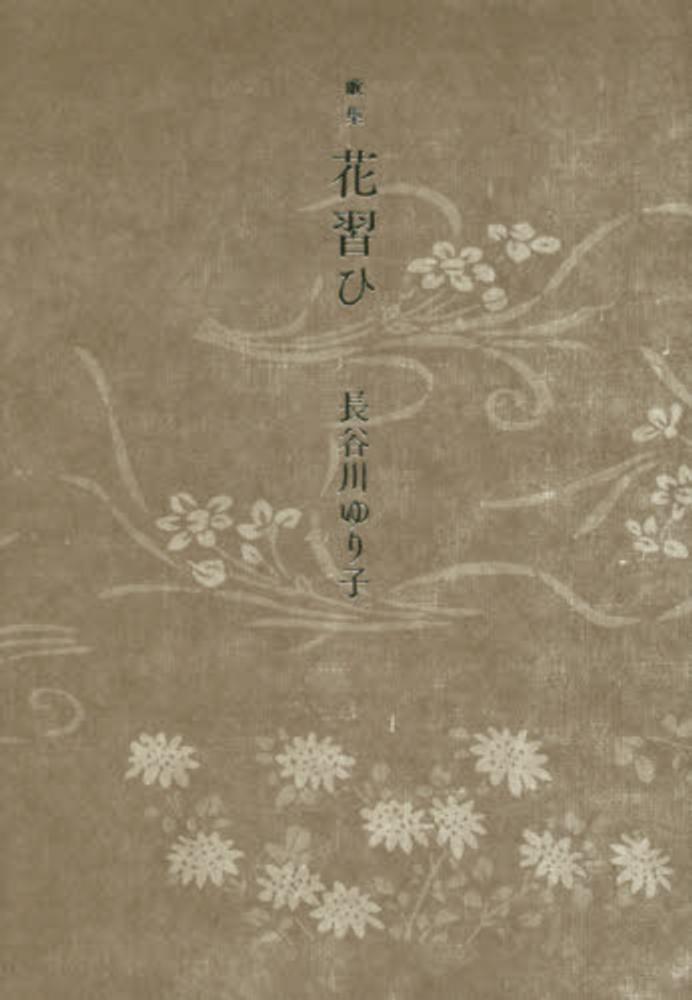 歌集
花習ひ
長谷川ゆり子